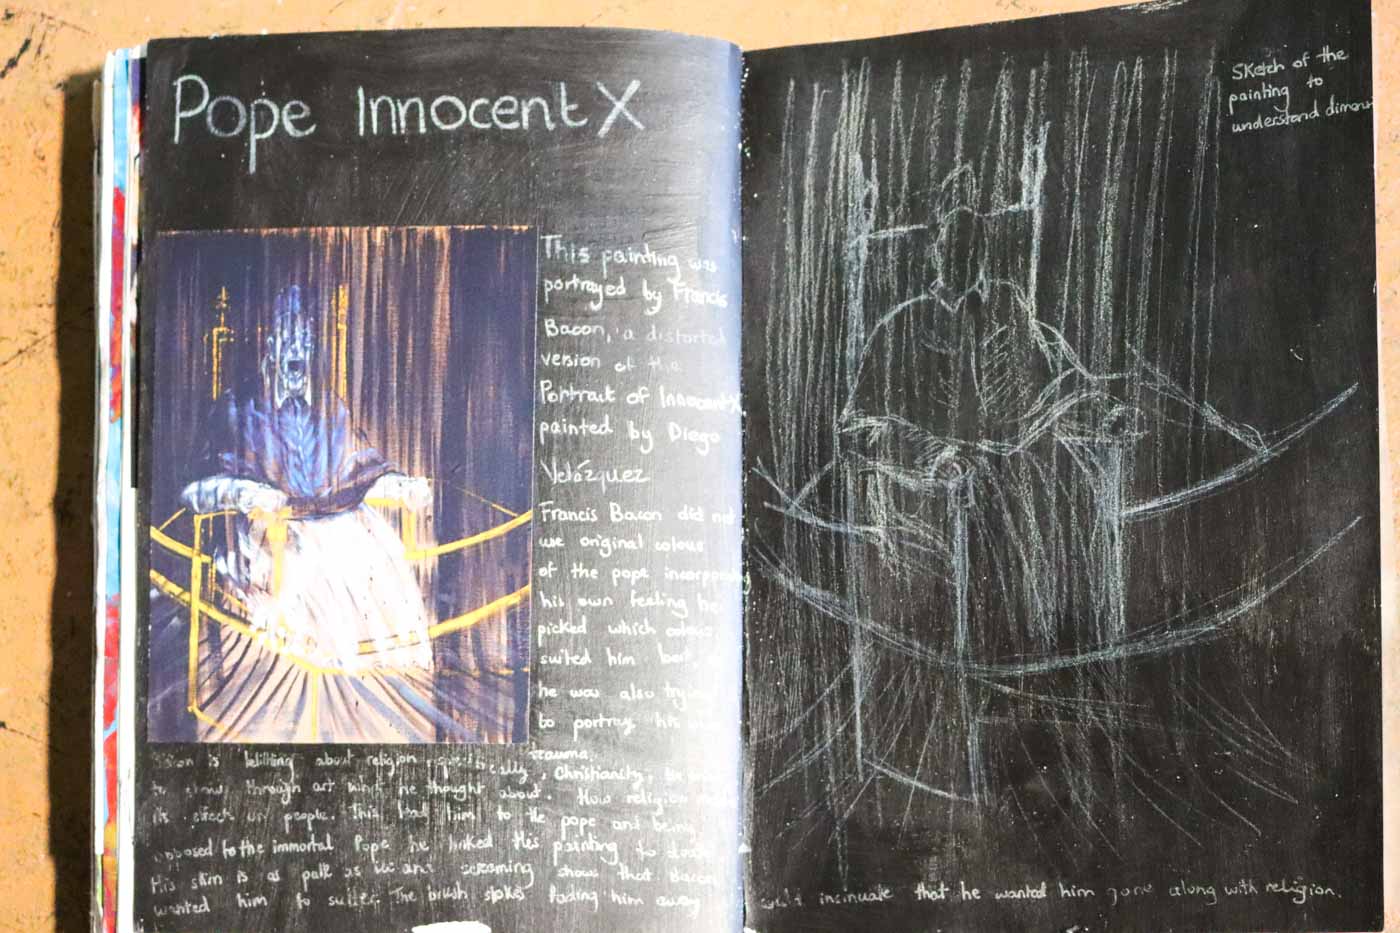 Pope Innocent X
This painting was
portrayed by Francis
Bacon, a distorted
version of the
Portrait of Innocent X.
painted by Diego
Velázquez
Francis Bacon did not
use original colour
of the pope incorporating
his own feeling he
picked which colour
suited him best,
he was also trying
to portray his
trauma.
is about religion, specifically, Christianity. he
to show through art what he thought about. How religion
its effect on people. This lead him to the pope and being
opposed to the immortal Pope he linked this painting to
His skin is as pale as ice and screaming shows that Bacon
wanted him to suffer. The brush stokes fading him away
Sketch of the
painting to
understand
could insinuate that he wanted him gone along with religion.